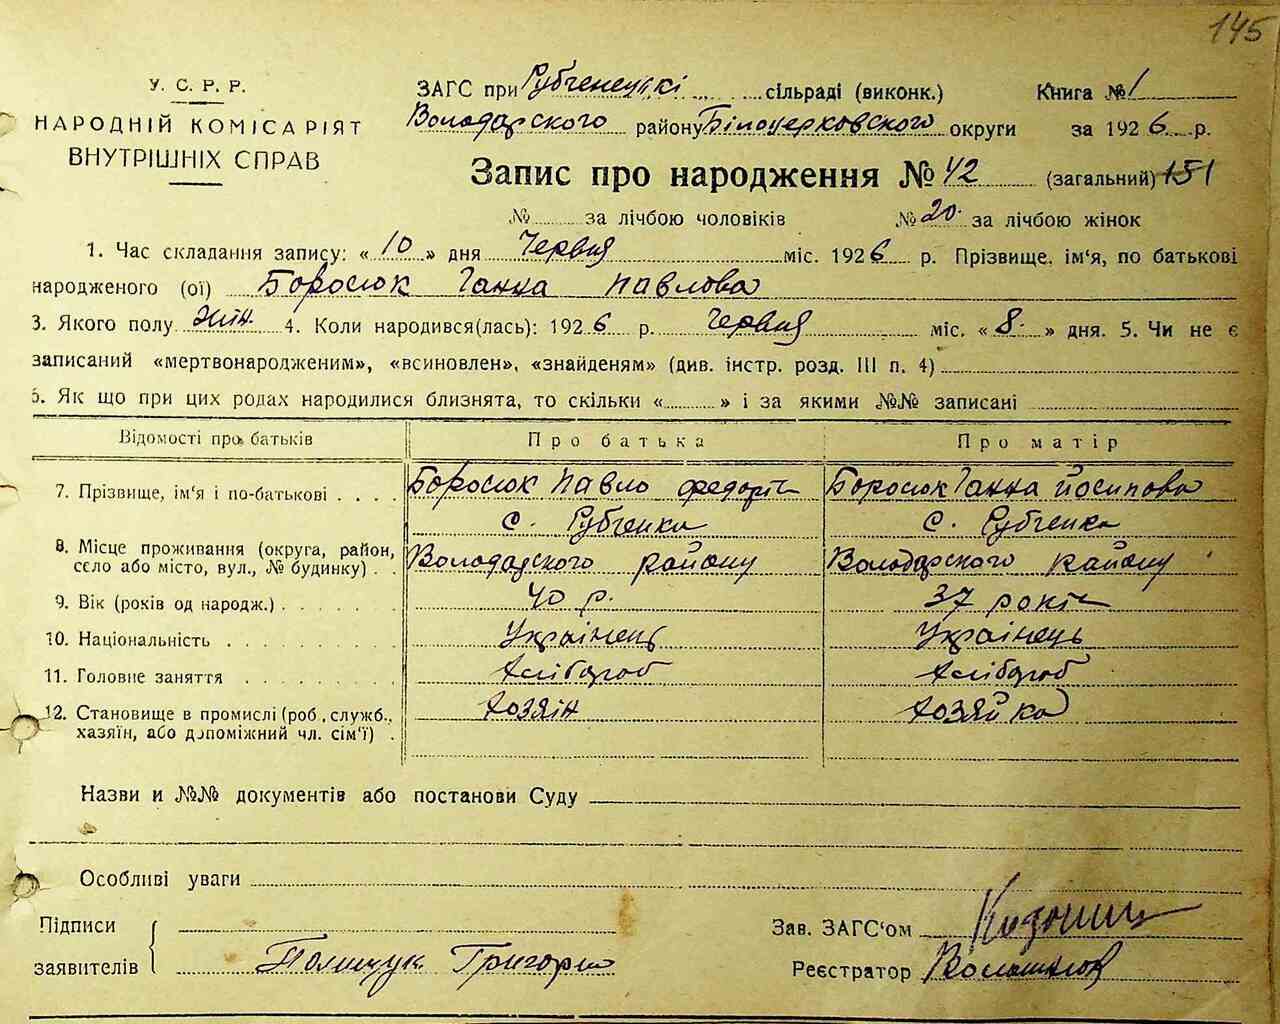 145
У. С. Р. Р.
НАРОДНІЙ КОМІСАРІЯТ
ВНУТРІШНІХ СПРАВ
ЗАГС при Рубченецькі сільраді (виконк.) Книга № 1
Володарского району Білоцерковского округи за 1926 р.
Запис про народження № 42 (загальний) 151
№ за лічбою чоловіків № 20 за лічбою жінок
1. Час складання запису: «10» дня Червня міс. 1926 р. Прізвище, ім'я, по батькові
народженого (ої) Боросюк Ганна Павлова
3. Якого полу жін. 4. Коли народився(лась): 1926 р. Червня міс. «8» дня. 5. Чи не є
записаний «мертвонародженим», «всиновлен», «знайденям» (див. інстр. розд. III п. 4)
6. Як що при цих родах народилися близнята, то скільки « » і за якими №№ записані
Відомості про батьків Про батька Про матір
7. Прізвище, ім'я і по-батькові . . . . Боросюк Павло Федорів Боросюк Ганна Йосипова
с. Рубченка с. Рубченка
8. Місце проживання (округа, район, село або місто, вул., № будинку) . . Володарского району Володарского району
9. Вік (рохів од народж.) . . . . . . . 40 р. 37 років
10. Національність . . . . . . . . . Українець Українець
11. Головне заняття . . . . . . . . Хлібороб Хлібороб
12. Становище в промислі (роб., служб., хазяїн, або допоміжний чл. сім'ї) . Хозяін Хозяйка
Назви и №№ документів або постанови Суду
Особливі уваги
Підписи
заявителів Поліщук Григорій
Зав. ЗАГС'ом
Реєстратор